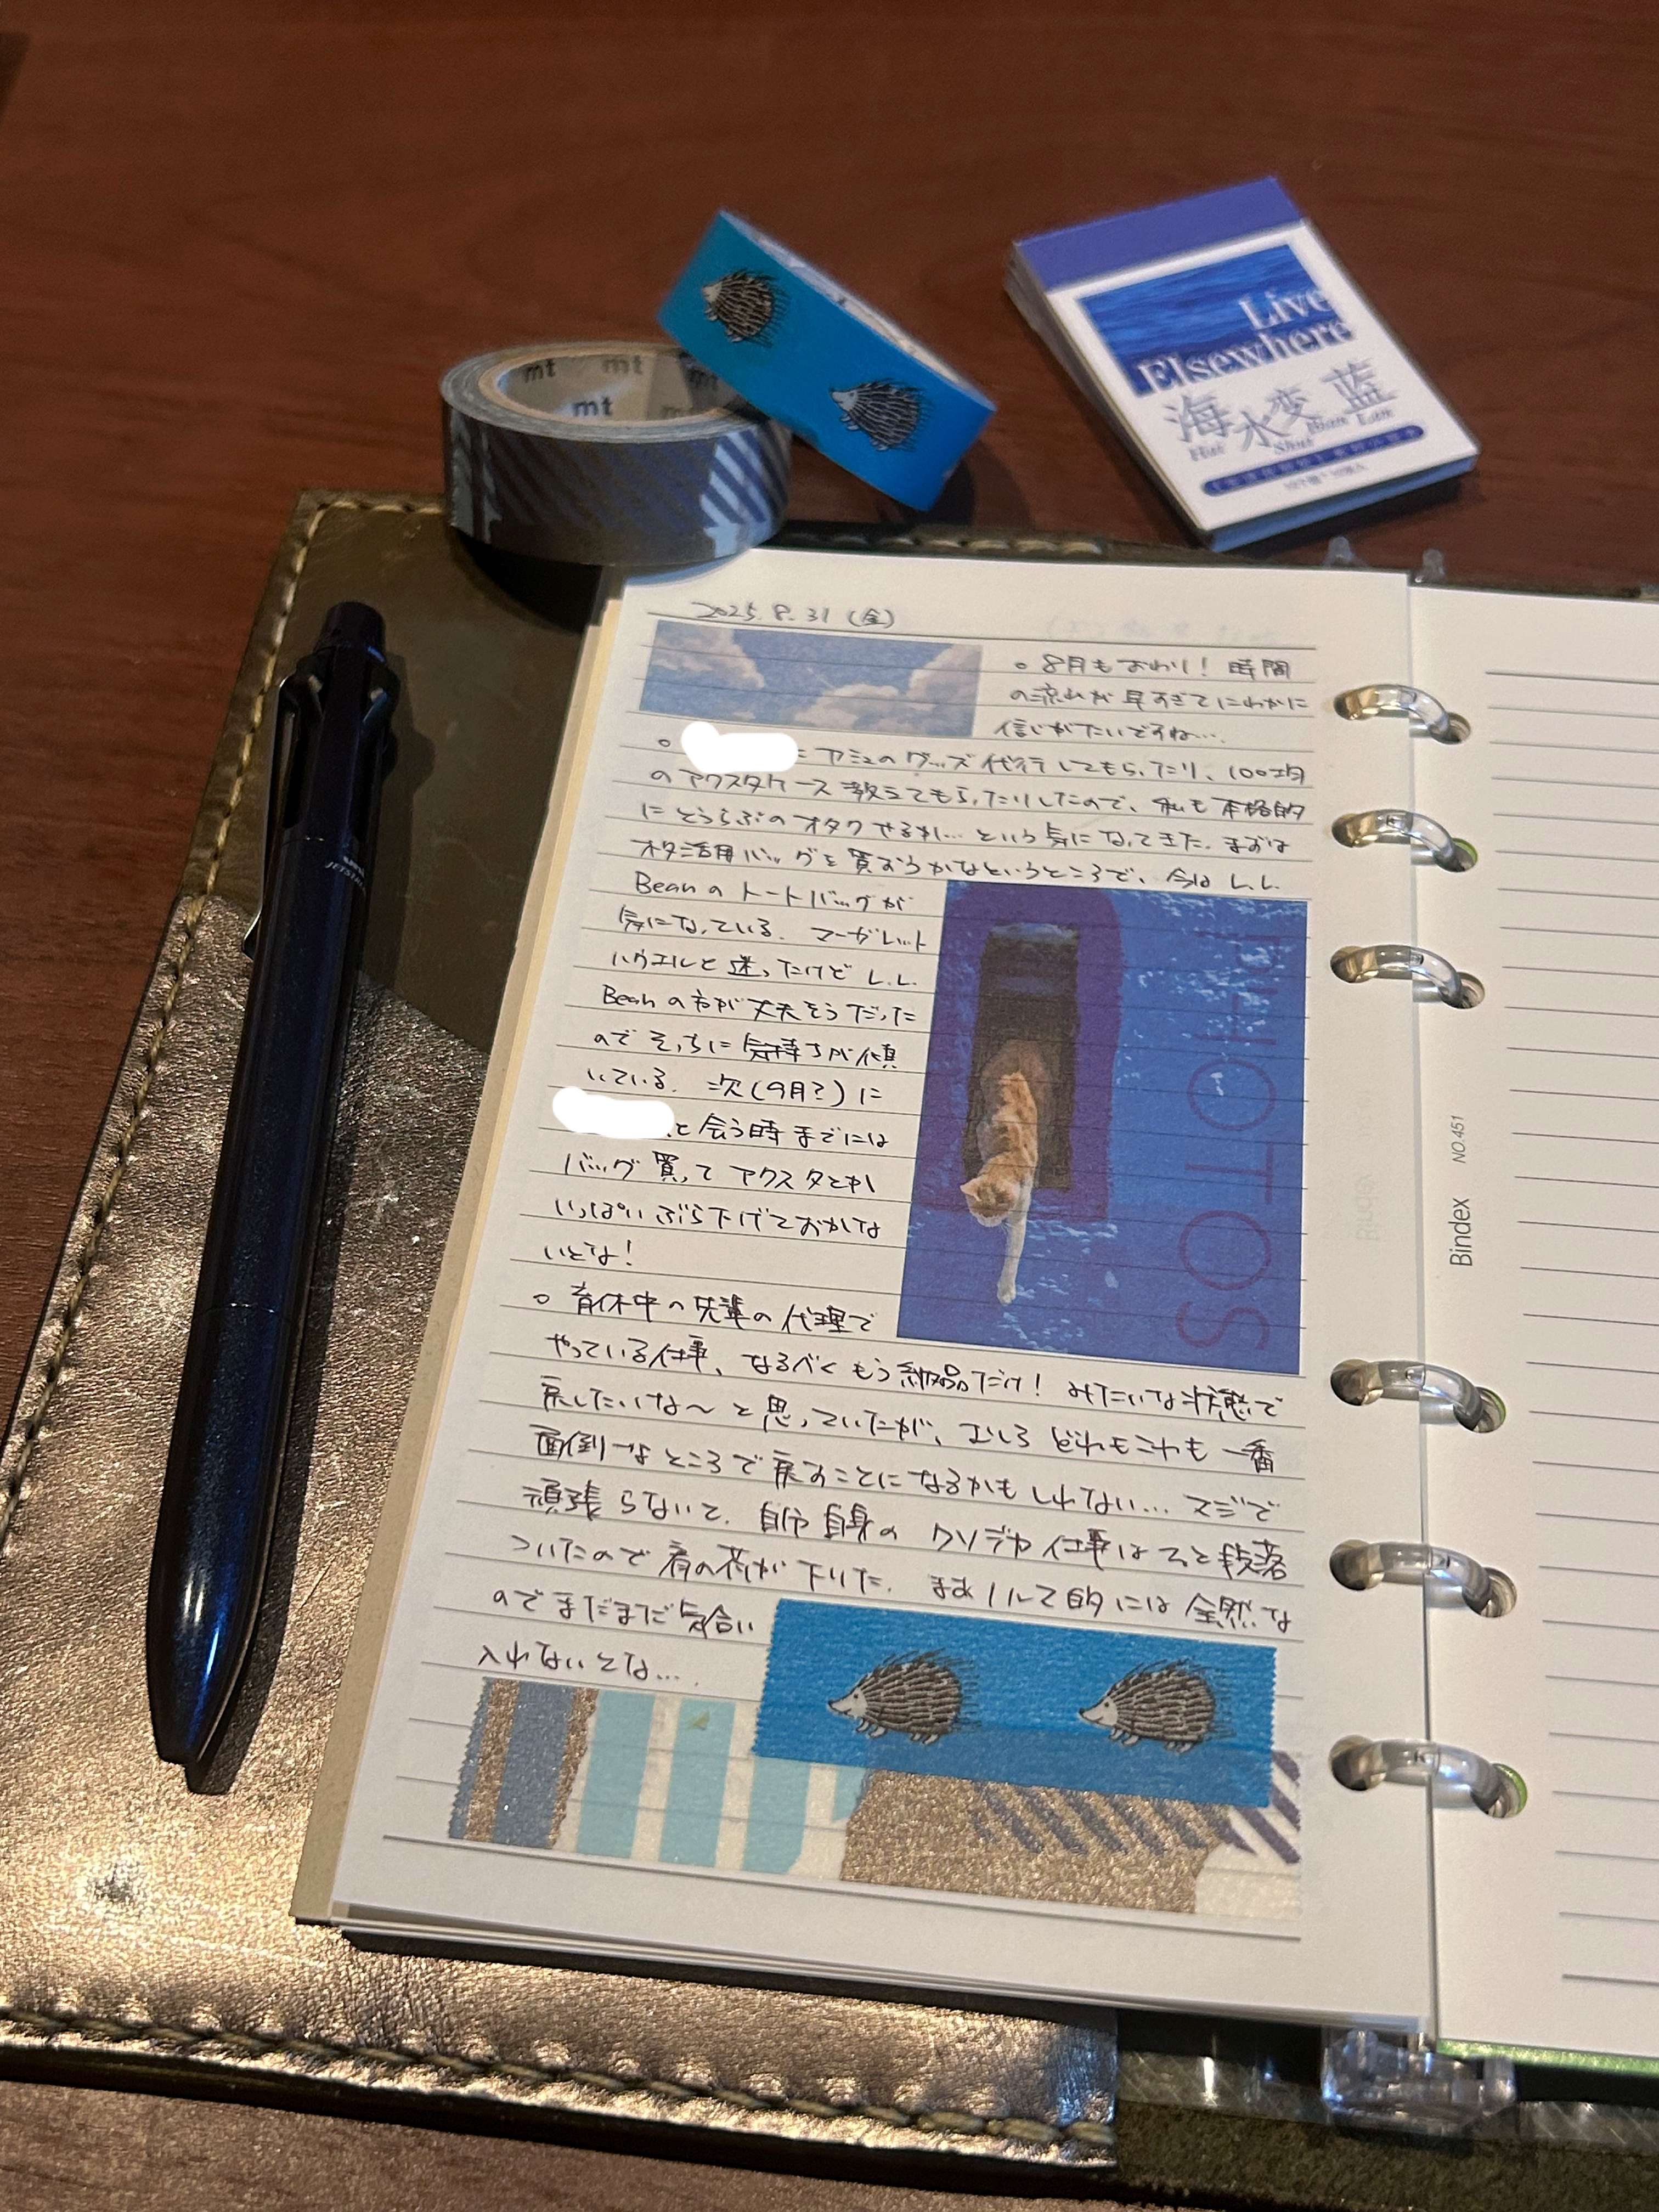 mt mt mt
mt
Live
Elsewhere
海水変蓝
Hai Shui Bian Lan
JETSTREAM
2025.8.31(金)
○8月もおわり!時間
の流れが早すぎてにわかに
信じがたいですね…
○ アミュのグッズ代行してもらったり、100均
のアクスタケース教えてもらったりしたので、私も本格的
にとうらぶのオタクやるか…という気になってきた。まずは
オタ活用バッグを買おうかなというところで、今はL.L.
Beanのトートバッグが
気になっている。マーガレット
ハウエルと迷ったけどL.L.
Beanの方が丈夫そうだった
のでそっちに気持ちが傾
いている。次(9月?)に
と会う時までには
バッグ買ってアクスタとか
いっぱいぶら下げておかな
いとな!
○育休中の先輩の代理で
やっている仕事、なるべくもう納品だけ!みたいな状態で
戻したいな〜と思っていたが、むしろどれもこれも一番
面倒なところで戻すことになるかもしれない…マジで
頑張らないと。自分自身のクソデカ仕事はやっと段落
ついたので肩の荷が下りた。まあノルマ的には全然な
のでまだまだ気合い
入れないとな…
PHOTOS
Bindex NO.451